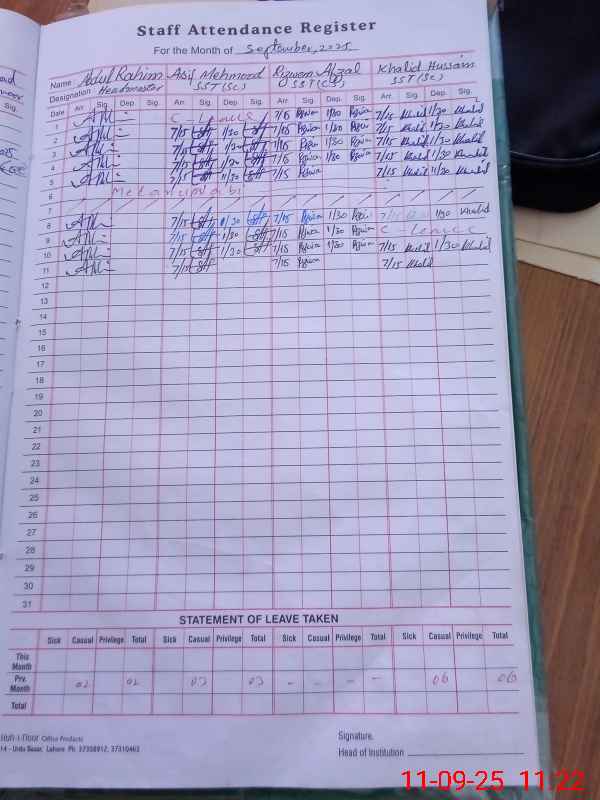 Staff Attendance Register
For the Month of September, 2025
Name: Abdul Rahim Asif Mehmood Rizwan Afzal Khalid Hussain
Designation: Headmaster SST(Sc) SST(CS) SST(Sc)
Date Arr. Sig. Dep. Sig. Arr. Sig. Dep. Sig. Arr. Sig. Dep. Sig. Arr. Sig. Dep. Sig.
1 C - Leave 7/15 Rizwan 1/30 Rizwan 7/15 Khalid 1/30 Khalid
2 7/15 1/30 7/15 Rizwan 1/30 Rizwan 7/15 Khalid 1/30 Khalid
3 7/15 1/30 7/15 Rizwan 1/30 Rizwan 7/15 Khalid 1/30 Khalid
4 7/15 1/30 7/15 Rizwan 1/30 Rizwan 7/15 Khalid 1/30 Khalid
5 7/15 11/30 7/15 Rizwan 7/15 Khalid 11/30 Khalid
6
7
8 7/15 1/30 7/15 Rizwan 1/30 Rizwan 7/15 1/30 Khalid
9 7/15 1/30 7/15 Rizwan 1/30 Rizwan C - Leave
10 7/15 1/30 7/15 Rizwan 1/30 Rizwan 7/15 Khalid 1/30 Khalid
11 7/15 7/15 Rizwan 7/15 Khalid
12
13
14
15
16
17
18
19
20
21
22
23
24
25
26
27
28
29
30
31
STATEMENT OF LEAVE TAKEN
Sick Casual Privilege Total Sick Casual Privilege Total Sick Casual Privilege Total Sick Casual Privilege Total
This Month
Prv. Month 02 02 03 03 - - - - 06 06
Total
Office Products
14 - Urdu Bazar, Lahore Ph: 37358912, 37310463
Signature.
Head of Institution
11-09-25 11:22